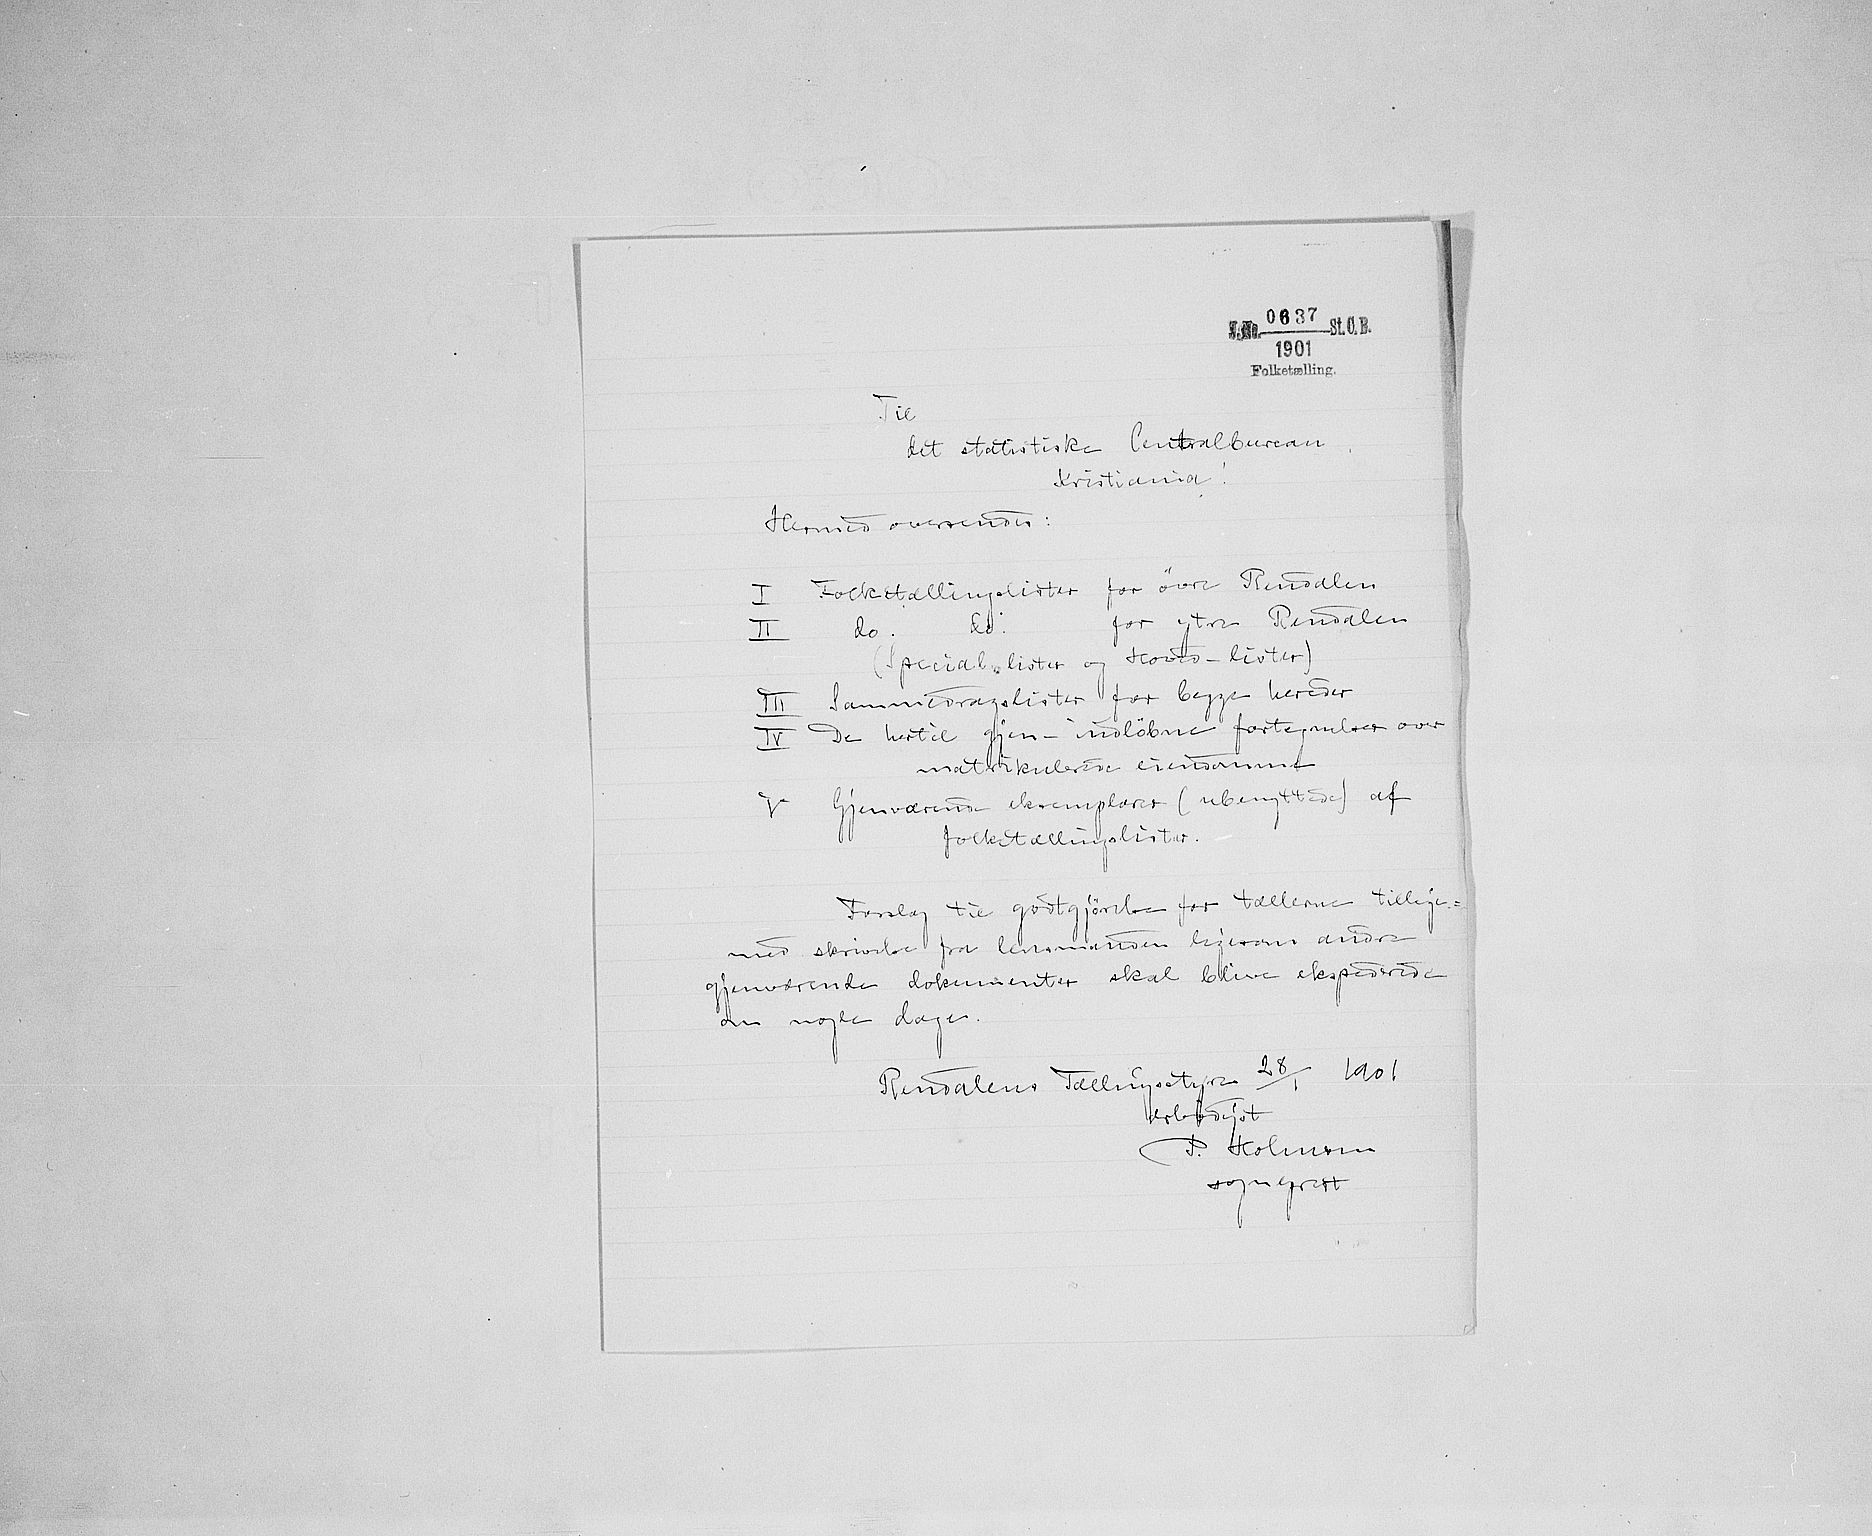 J.No. 0637 St.C.B.
1901
Folketælling.
Til
det statistiske Centralbureau,
Kristiania!
Hermed oversendes:
I Folketællingslister for övre Rendalen
II do. do. for ytre Rendalen
(Special-lister og Hoved-lister)
III Sammendragslister for begge hereder
IV De hertil gjen-indlöbne fortegnelser over
matrikulerede eiendomme
V Gjenværende eksemplarer (ubenyttede) af
folketællingslister.
Forslag til godtgjörelse for tællerne tillige=
med skrivelse fra lensmanden ligesom andre
gjenværende dokumenter skal blive ekspederede
om nogle dage.
Rendalens Tællingsstyre 28/1 1901
ærbødigst
P. Holmsen
sogneprest